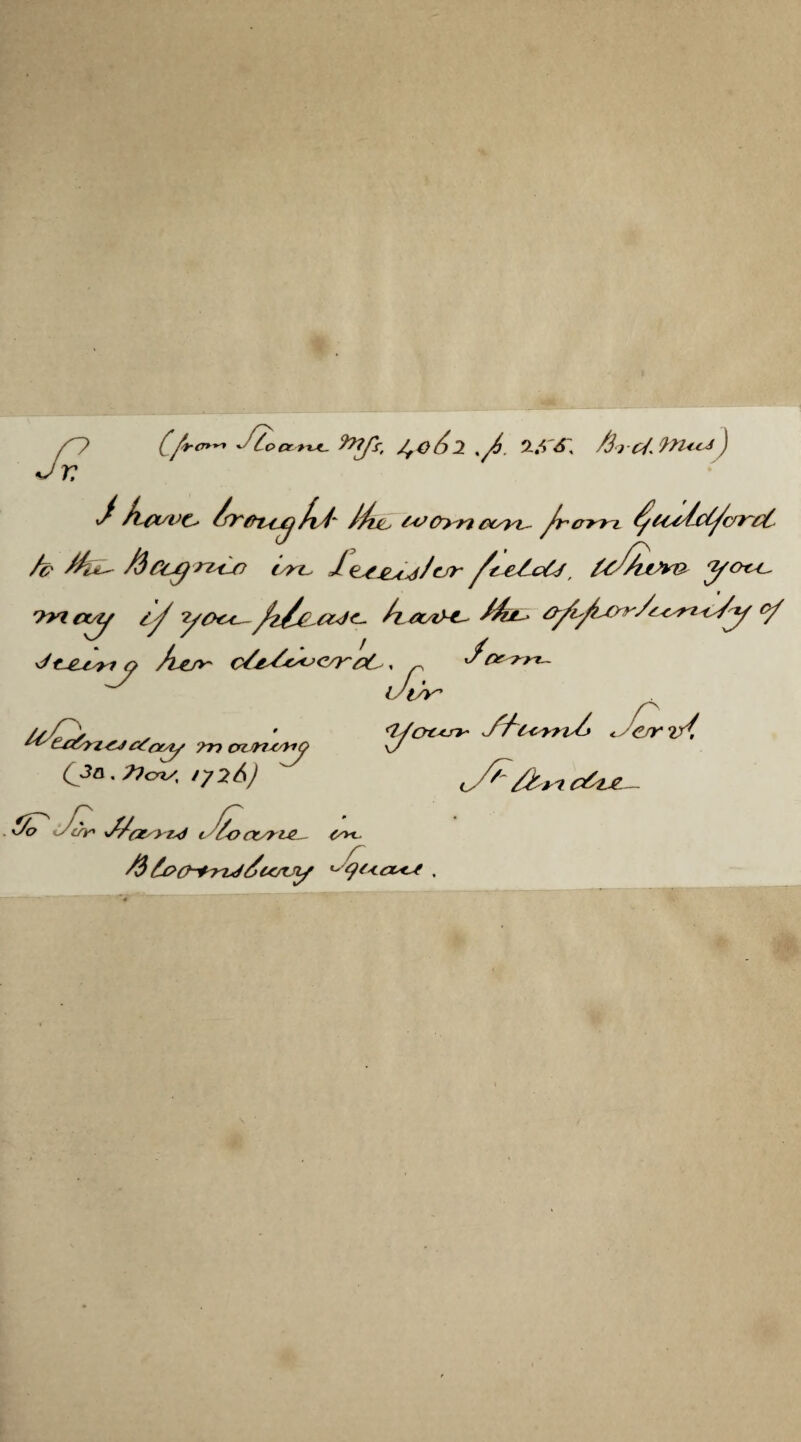 (from Sloane Mſs, 4062. f. 255. Brit. Mus)
Sr.
I have brought the woman from Guildford
to the Bagnio in Leicester fields, where you
may if you please have the opportunity of
seeing her deliverd. I am
Sir
Wednesday morning Your Humb Servt.
(30. Nov. 1726) St Andre
To Sr Hans Sloane in
Bloomsbury Square.